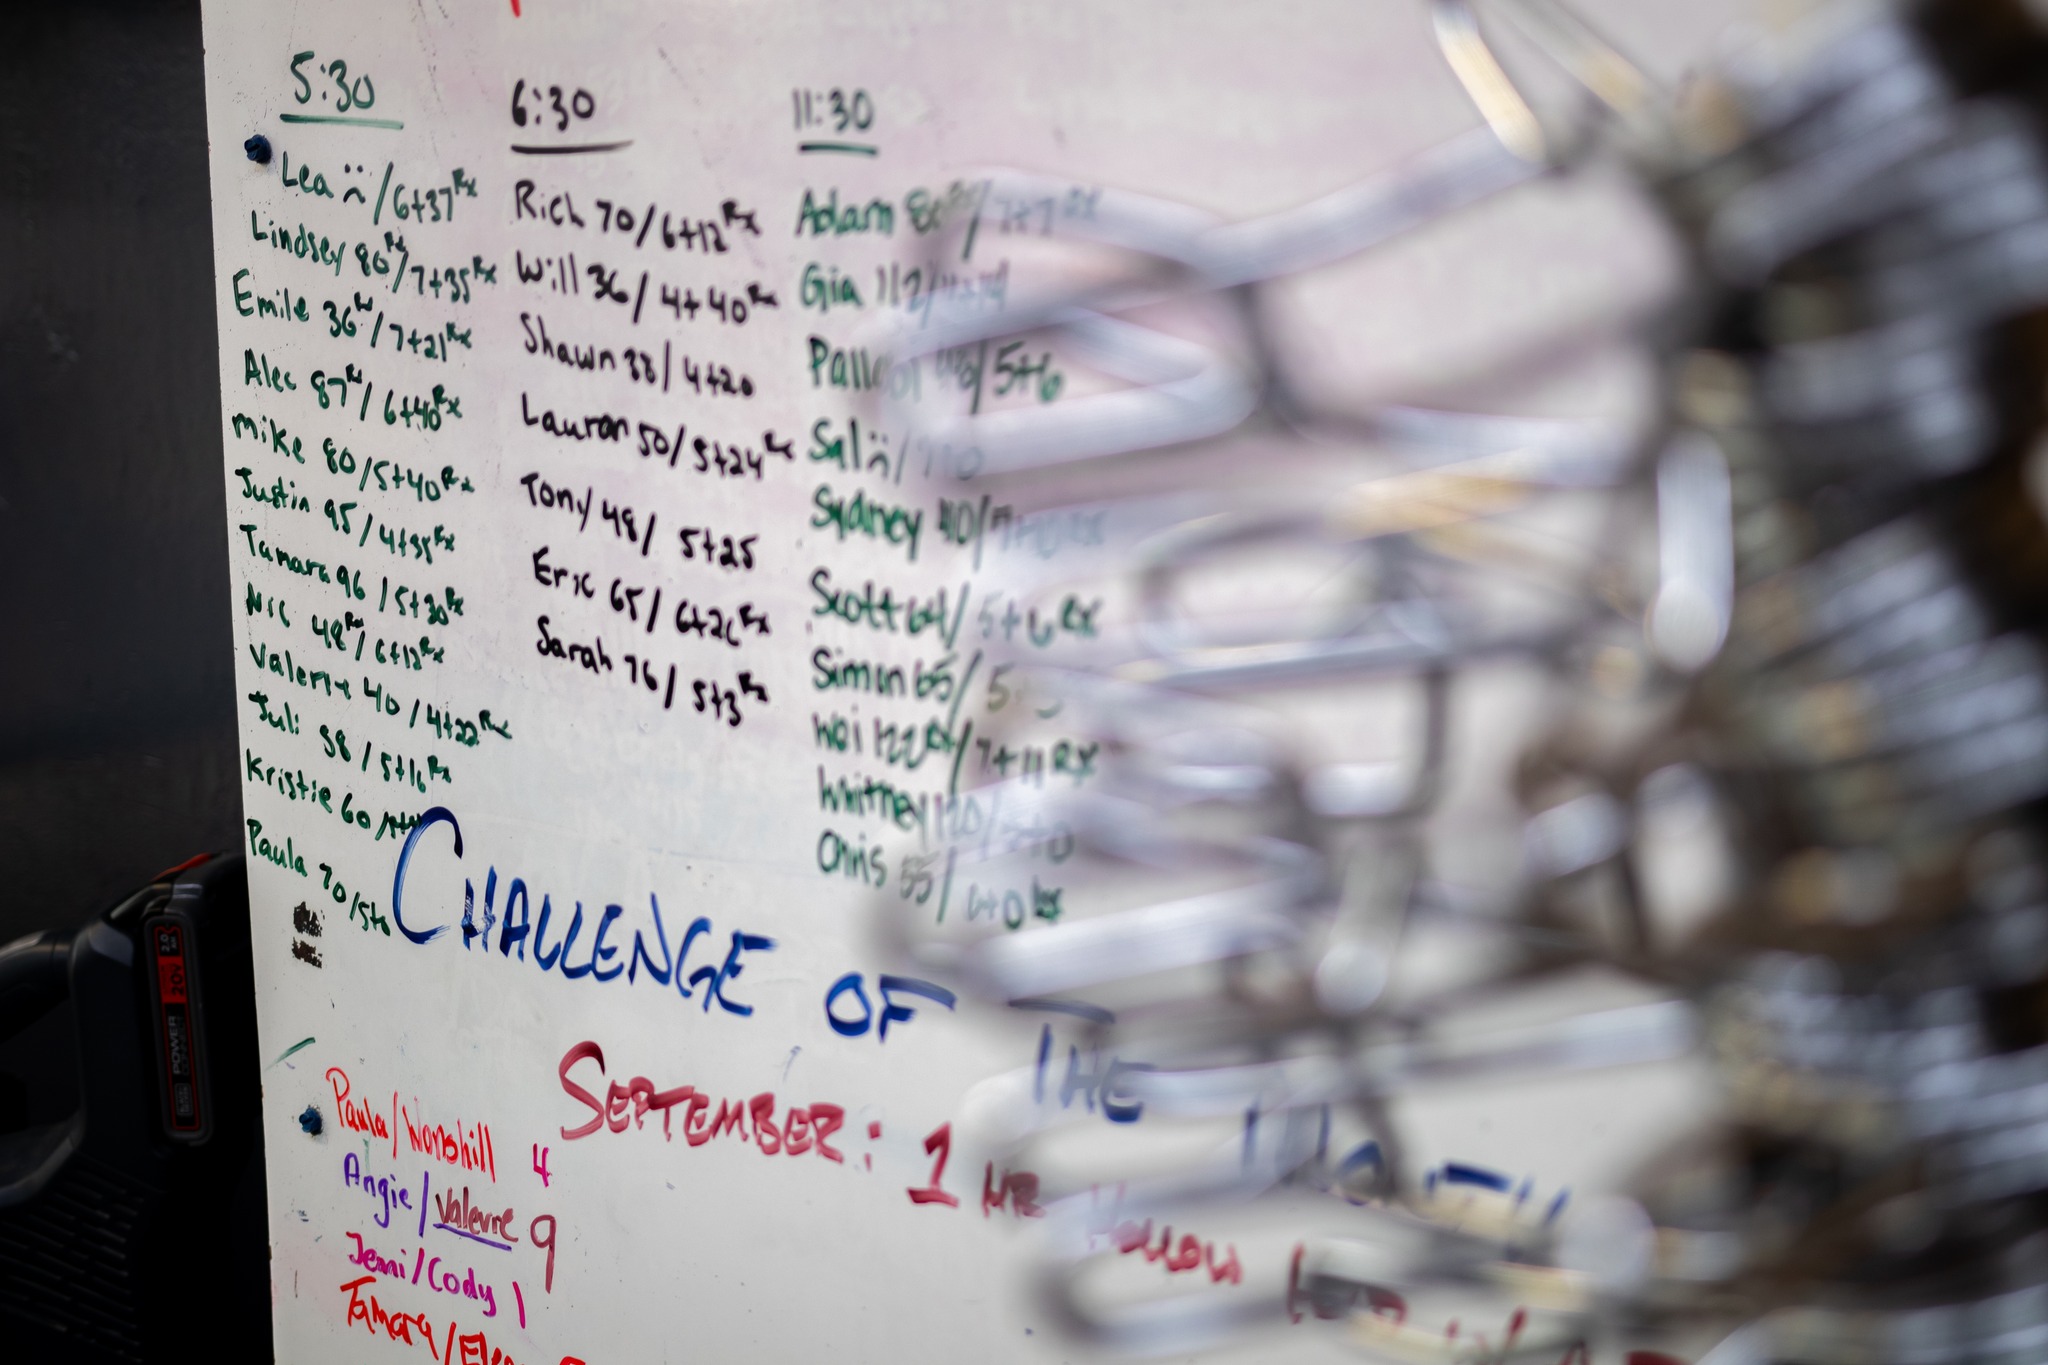 5:30
Lea :( /6+37 Rx
Lindsey 80 Rx/7+35 Rx
Emile 36 Rx/7+21 Rx
Alec 87 Rx/6+40 Rx
Mike 80/5+40 Rx
Justin 95/4+35 Rx
Tamara 96/5+30 Rx
Nic 48 Rx/6+12 Rx
Valerie 40/4+22 Rx
Juli 38/5+16 Rx
Kristie 60
Paula 70/5+6
6:30
Rich 70/6+12 Rx
Will 36/4+40 Rx
Shawn 38/4+20
Lauren 50/5+24 Rx
Tony 48/5+25
Eric 65/6+26 Rx
Sarah 76/5+3 Rx
11:30
Adam /7+7 Rx
Gia 112/
/5+6
Sal :( /
Sydney 40/
Scott 64/5+6 Rx
Simon 65/5
122 Rx/7+11 Rx
Whitney 120/
Chris 55/6+0 Rx
CHALLENGE OF THE MONTH
SEPTEMBER: 1 HR HOLLOW
Paula/ 4
Angie/Valerie 9
Jenni/Cody 1
Tamara/
POWER CONNECT
20V
2.0